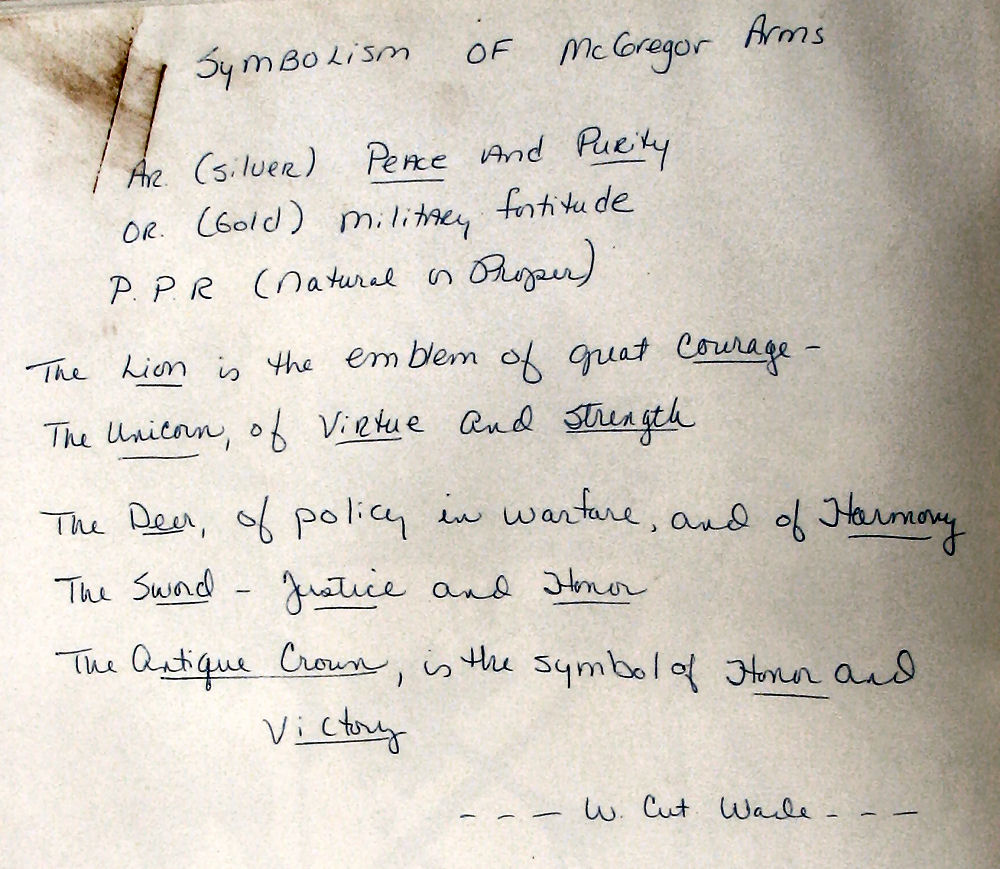 Symbolism OF McGregor Arms
AR. (Silver) Peace and Purity
OR. (Gold) Military fortitude
P.P.R (Natural or Proper)
The Lion is the emblem of great Courage -
The Unicorn, of Virtue and Strength
The Deer, of policy in warfare, and of Harmony
The Sword - Justice and Honor
The Antique Crown, is the symbol of Honor and
Victory
- - - W. Cut Wade - - -